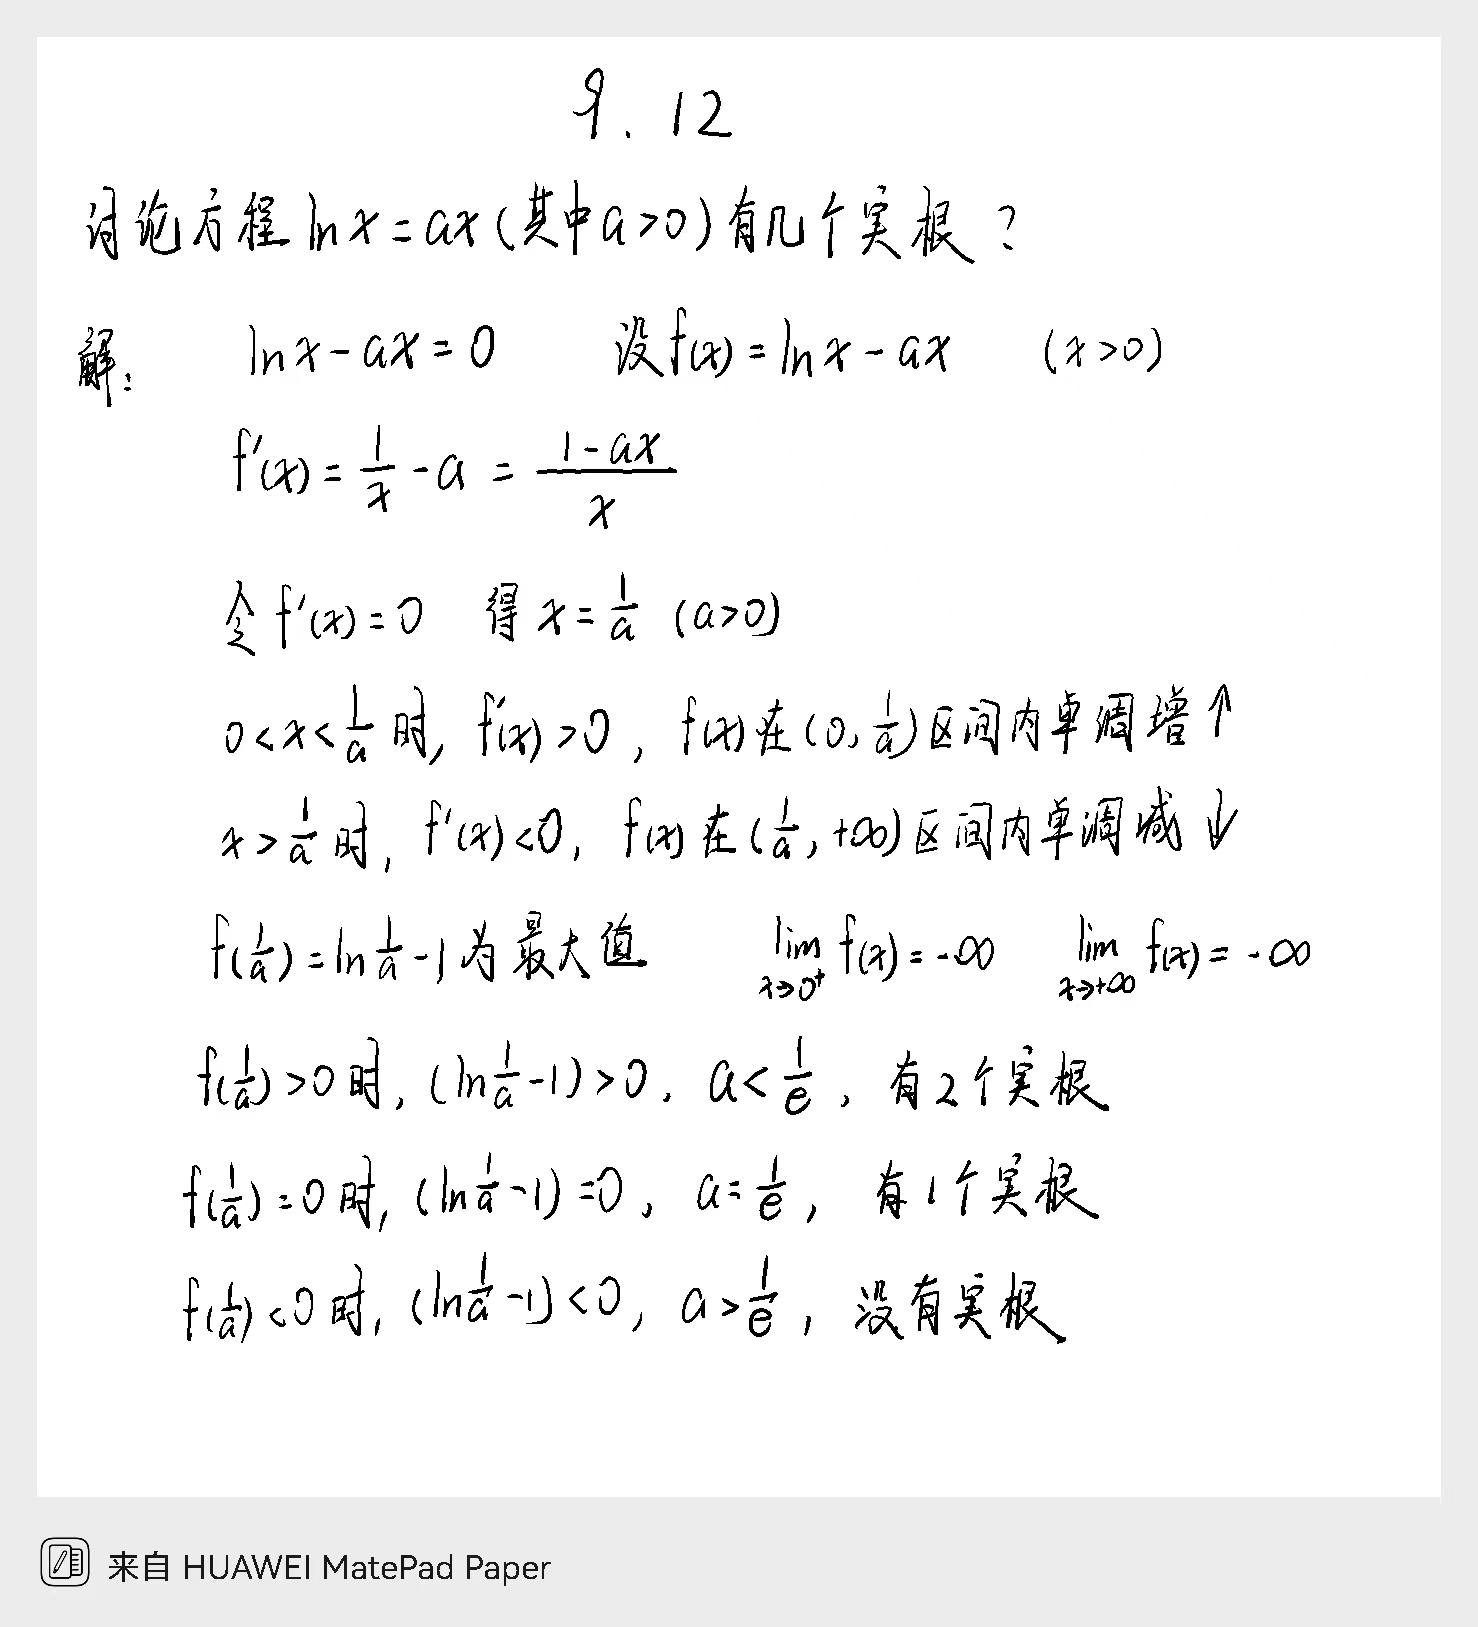 9.12
讨论方程 ln x = ax (其中 a>0) 有几个实根?
解: ln x - ax = 0 设 f(x) = ln x - ax (x>0)
f'(x) = 1/x - a = (1-ax)/x
令 f'(x) = 0 得 x = 1/a (a>0)
0<x<1/a 时, f'(x)>0, f(x) 在 (0, 1/a) 区间内单调增↑
x>1/a 时, f'(x)<0, f(x) 在 (1/a, +∞) 区间内单调减↓
f(1/a) = ln 1/a - 1 为最大值 lim x→0⁺ f(x) = -∞ lim x→+∞ f(x) = -∞
f(1/a)>0 时, (ln 1/a - 1)>0, a<1/e, 有2个实根
f(1/a)=0 时, (ln 1/a - 1)=0, a=1/e, 有1个实根
f(1/a)<0 时, (ln 1/a - 1)<0, a>1/e, 没有实根
来自 HUAWEI MatePad Paper